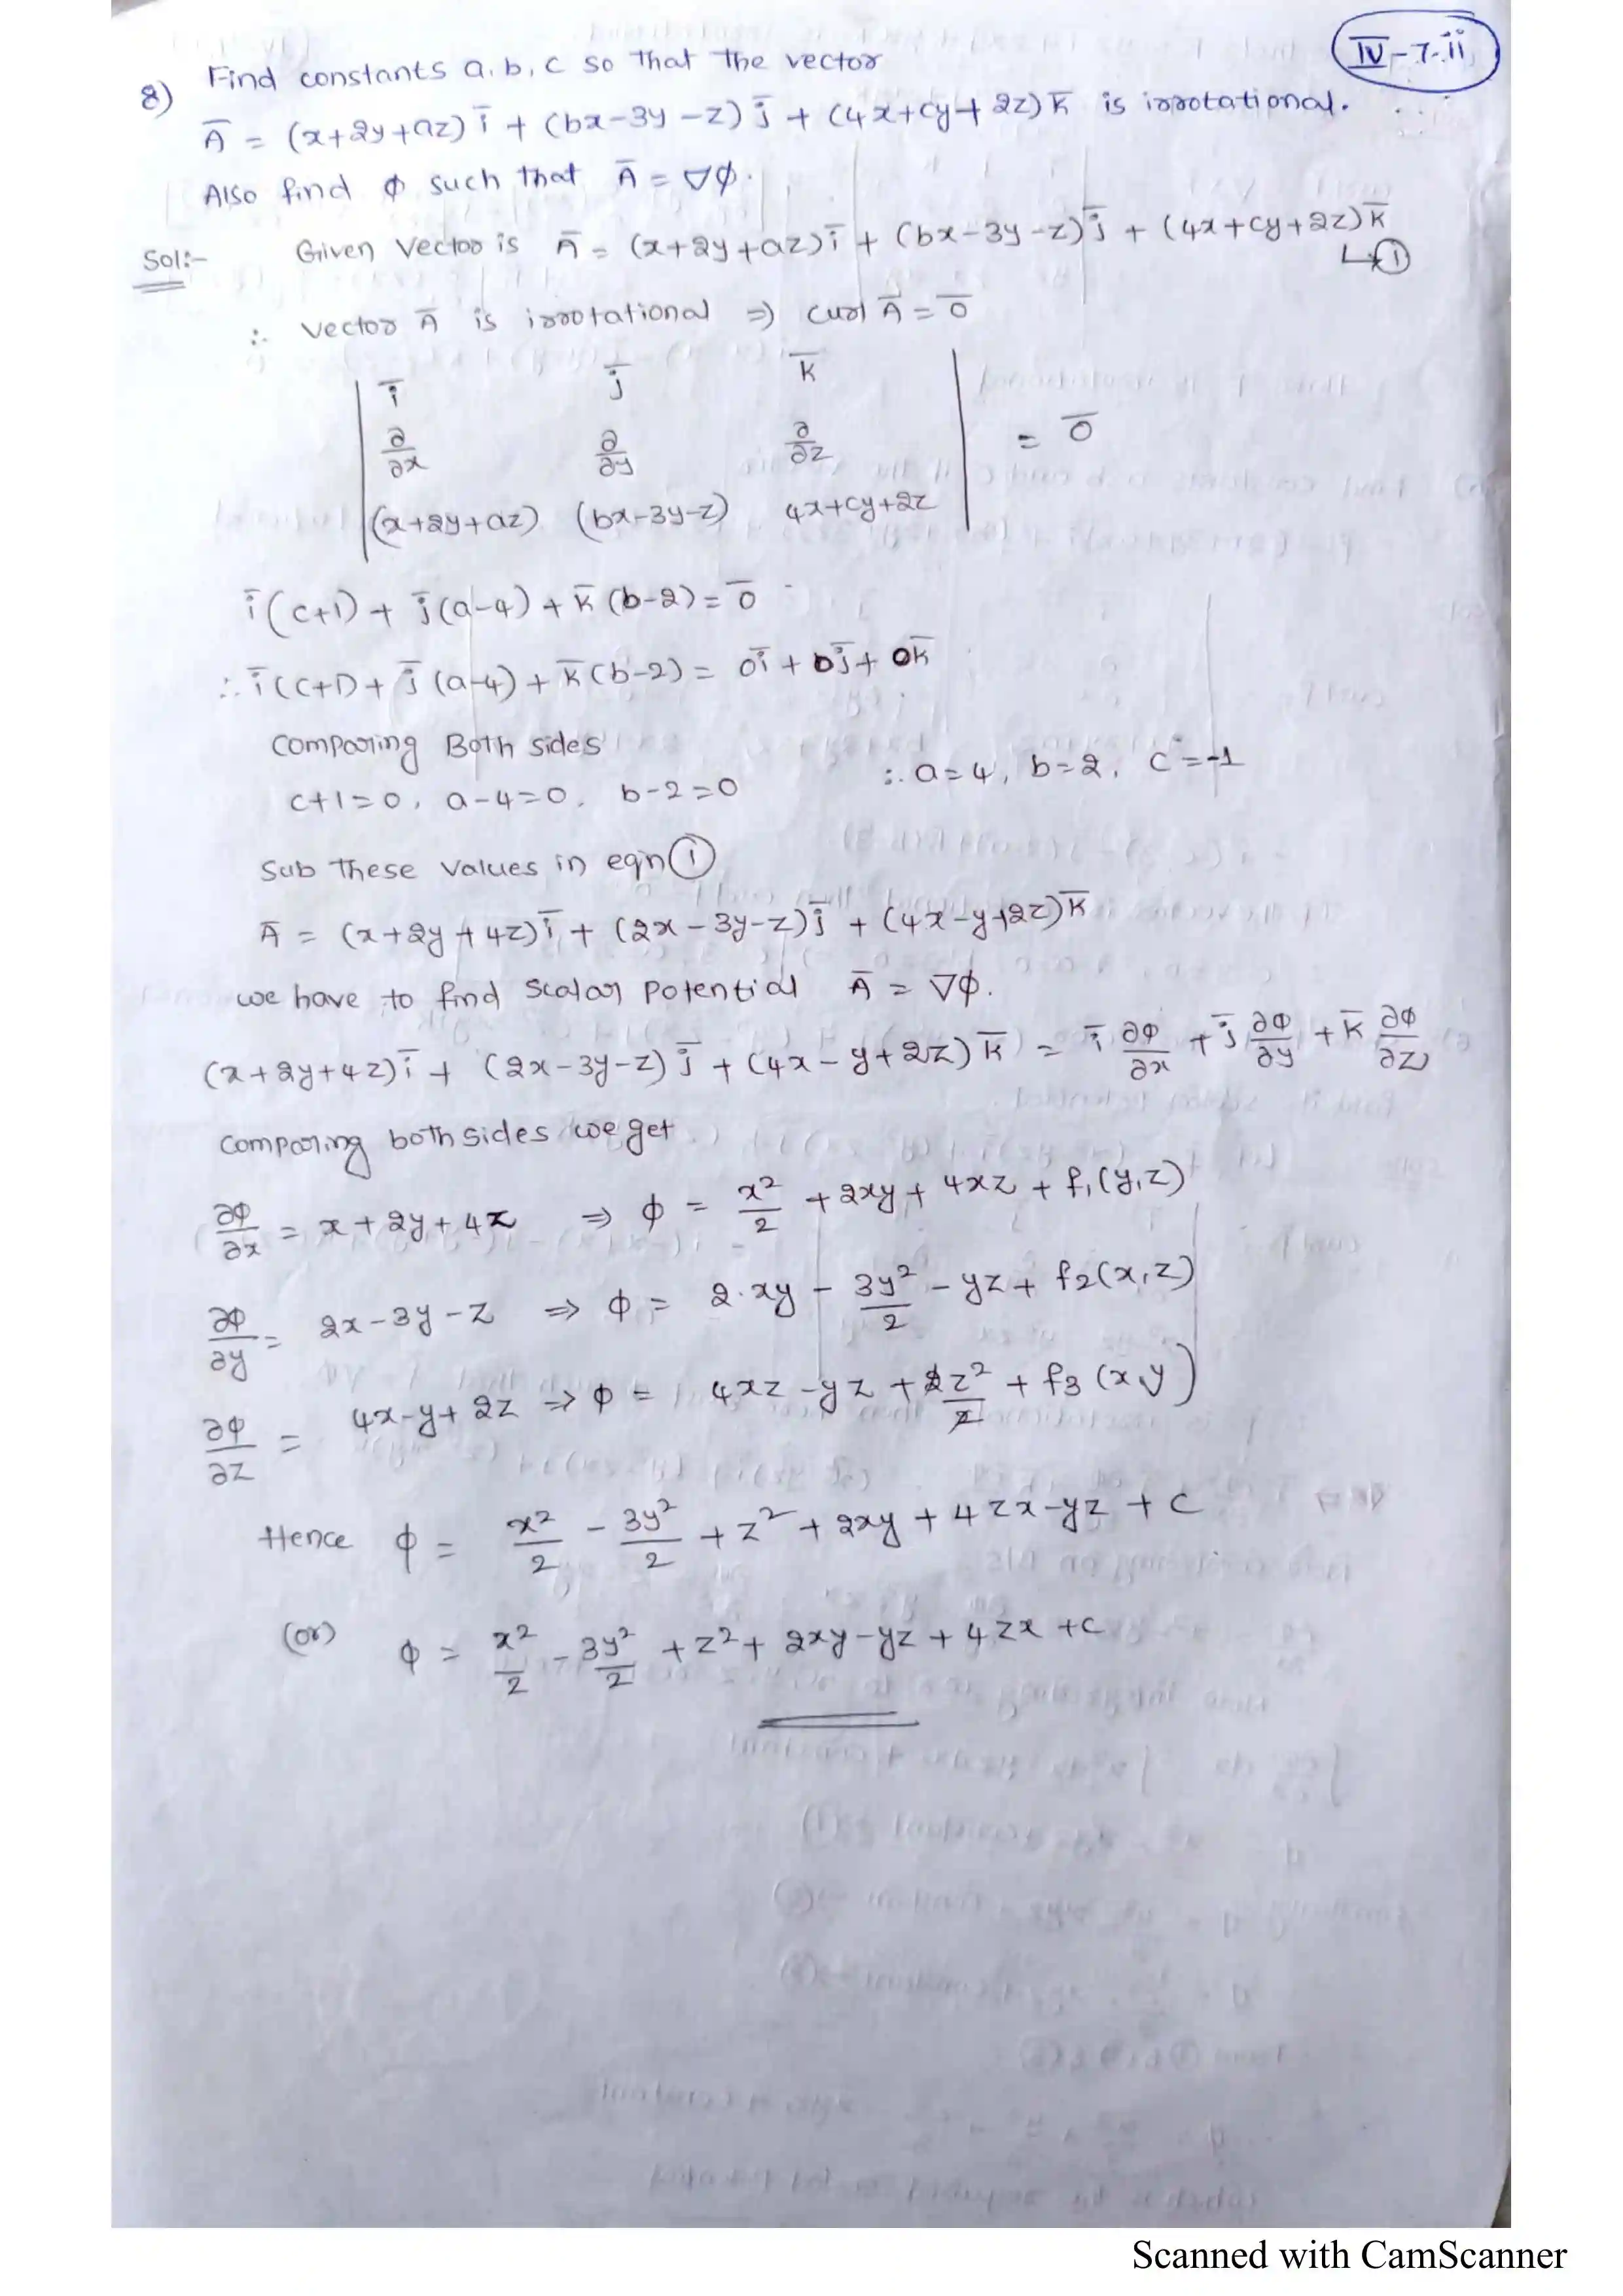 IV-7-ii
8) Find constants a, b, c so that the vector
Ā = (x+2y+az) ī + (bx-3y-z) j̄ + (4x+cy+2z) k̄ is irrotational.
Also find φ such that Ā = ∇φ.
Sol:- Given vector is Ā = (x+2y+az) ī + (bx-3y-z) j̄ + (4x+cy+2z) k̄
↳①
∴ vector Ā is irrotational ⇒ curl Ā = 0̄
| ī j̄ k̄ |
| ∂/∂x ∂/∂y ∂/∂z | = 0̄
| (x+2y+az) (bx-3y-z) 4x+cy+2z |
ī(c+1) + j̄(a-4) + k̄(b-2) = 0̄
∴ ī(c+1) + j̄(a-4) + k̄(b-2) = 0ī + 0j̄ + 0k̄
Comparing Both sides
c+1=0, a-4=0, b-2=0 ∴ a=4, b=2, c=-1
Sub these values in eqn ①
Ā = (x+2y+4z) ī + (2x-3y-z) j̄ + (4x-y+2z) k̄
we have to find scalar potential Ā = ∇φ.
(x+2y+4z) ī + (2x-3y-z) j̄ + (4x-y+2z) k̄ = ī ∂φ/∂x + j̄ ∂φ/∂y + k̄ ∂φ/∂z
Comparing both sides we get
∂φ/∂x = x+2y+4z ⇒ φ = x²/2 + 2xy + 4xz + f₁(y,z)
∂φ/∂y = 2x-3y-z ⇒ φ = 2·xy - 3y²/2 - yz + f2(x,z)
∂φ/∂z = 4x-y+2z ⇒ φ = 4xz - yz + 2z²/2 + f3(x,y)
Hence φ = x²/2 - 3y²/2 + z² + 2xy + 4zx - yz + c
(or) φ = x²/2 - 3y²/2 + z² + 2xy - yz + 4zx + c
Scanned with CamScanner